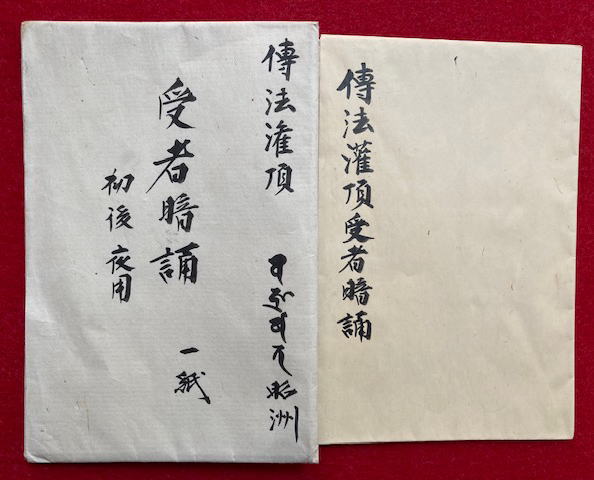 傳法灌頂
受者暗誦
初後夜用
一紙
昭洲
傳法灌頂受者暗誦